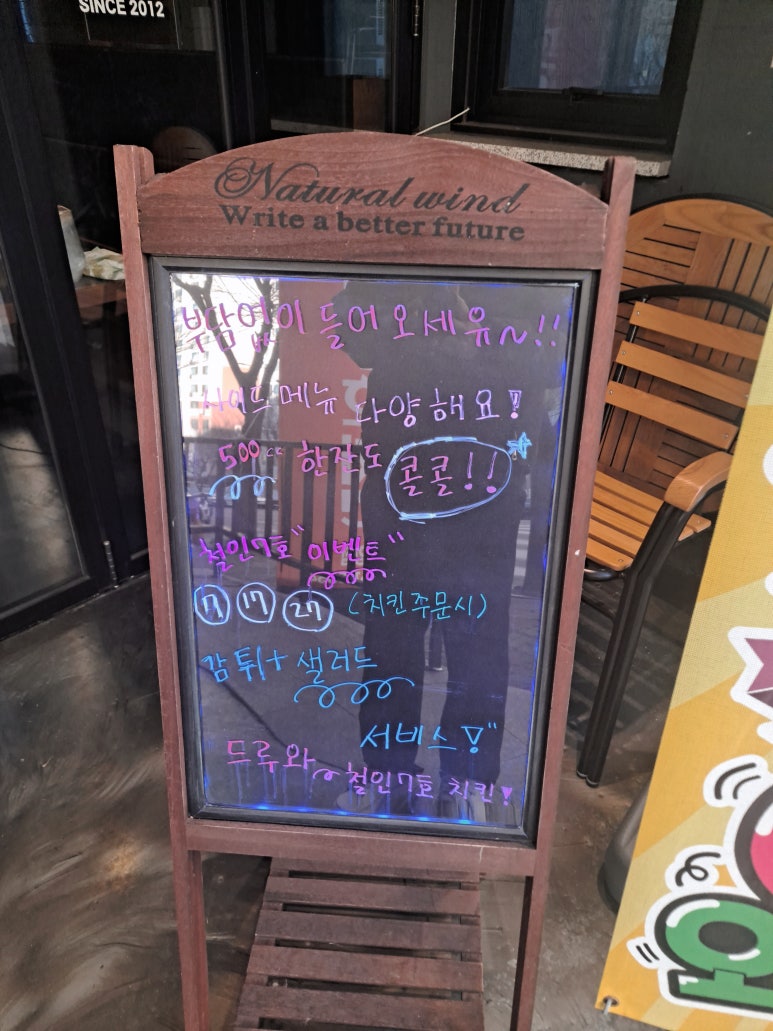 SINCE 2012
Natural wind
Write a better future
부담없이 들어오세유~!!
사이드메뉴 다양해요!
500cc 한잔도 콜콜!!
철인7호" 이벤트"
7 17 27 (치킨주문시)
감튀+ 샐러드
서비스!"
드루와~ 철인7호 치킨!